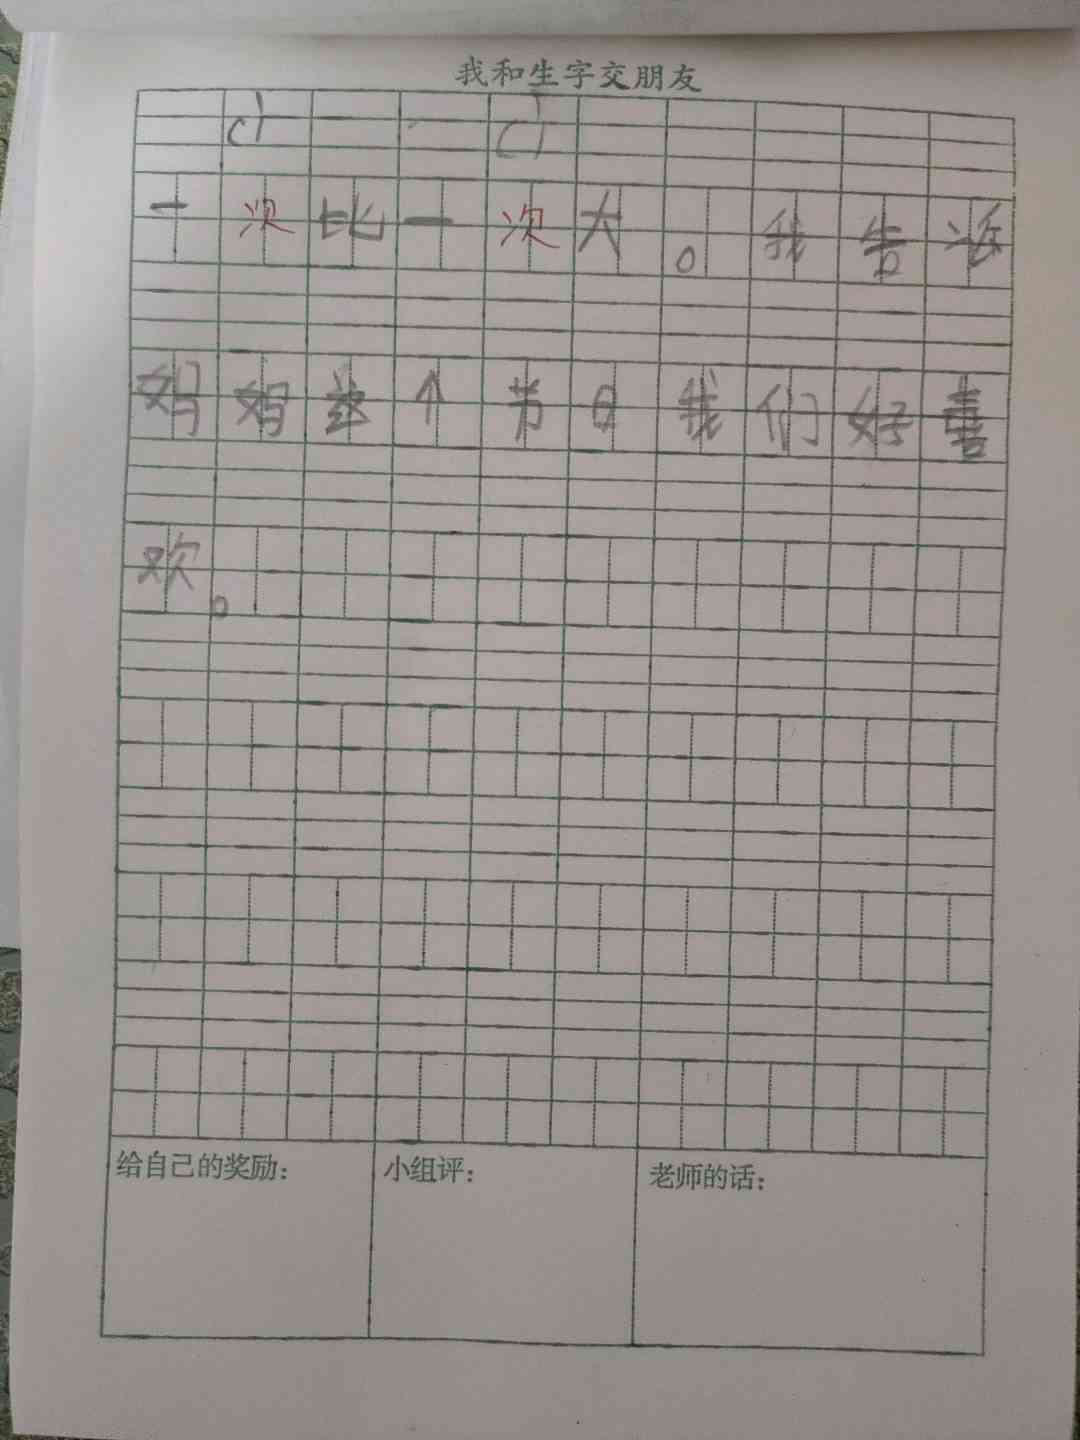 我和生字交朋友
cì cì
一次比一次大。我告诉
妈妈这个节日我们好喜
欢。
给自己的奖励： 小组评： 老师的话：